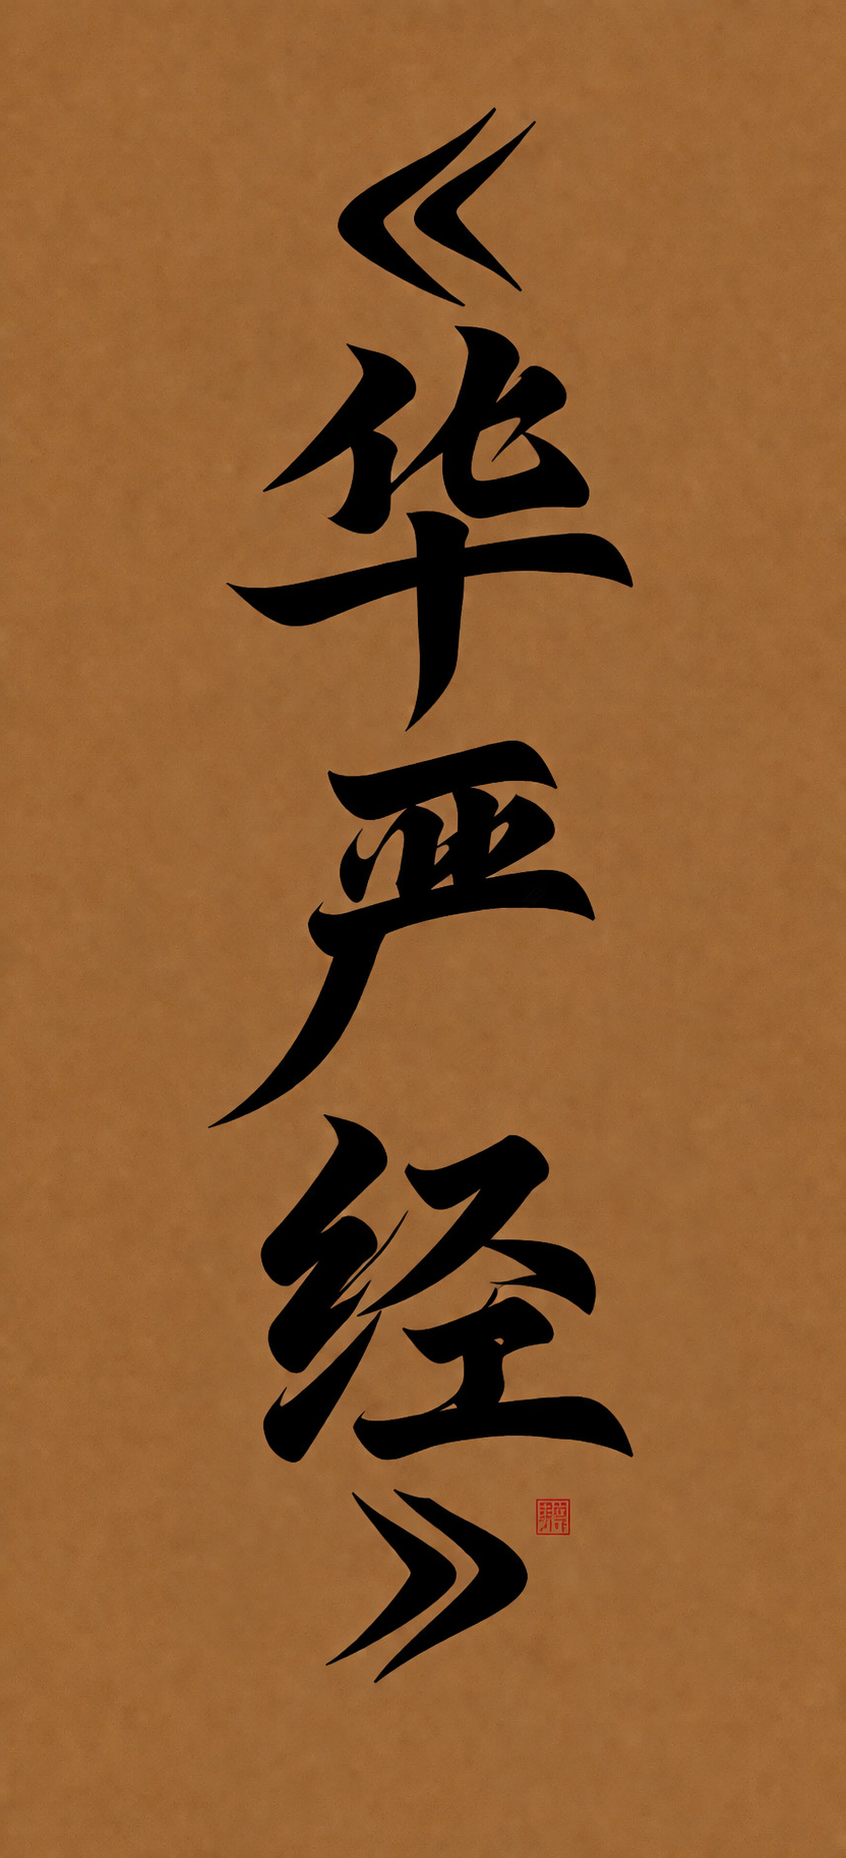 《华严经》